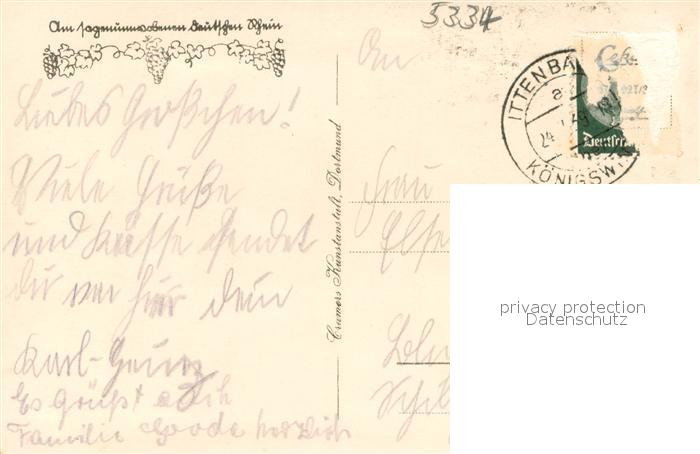 Am sagenumwobenen deutschen Rhein
5334
Liebes Großchen!
Viele Grüße
und Küsse sendet
dir von hier dein
Karl-Heinz
Es grüßt auch
Familie herzlich
An
Frau
Else
Cramers Kunstanstalt, Dortmund
ITTENBA
a
24
KÖNIGSWI
Deutsch
privacy protection
Datenschutz